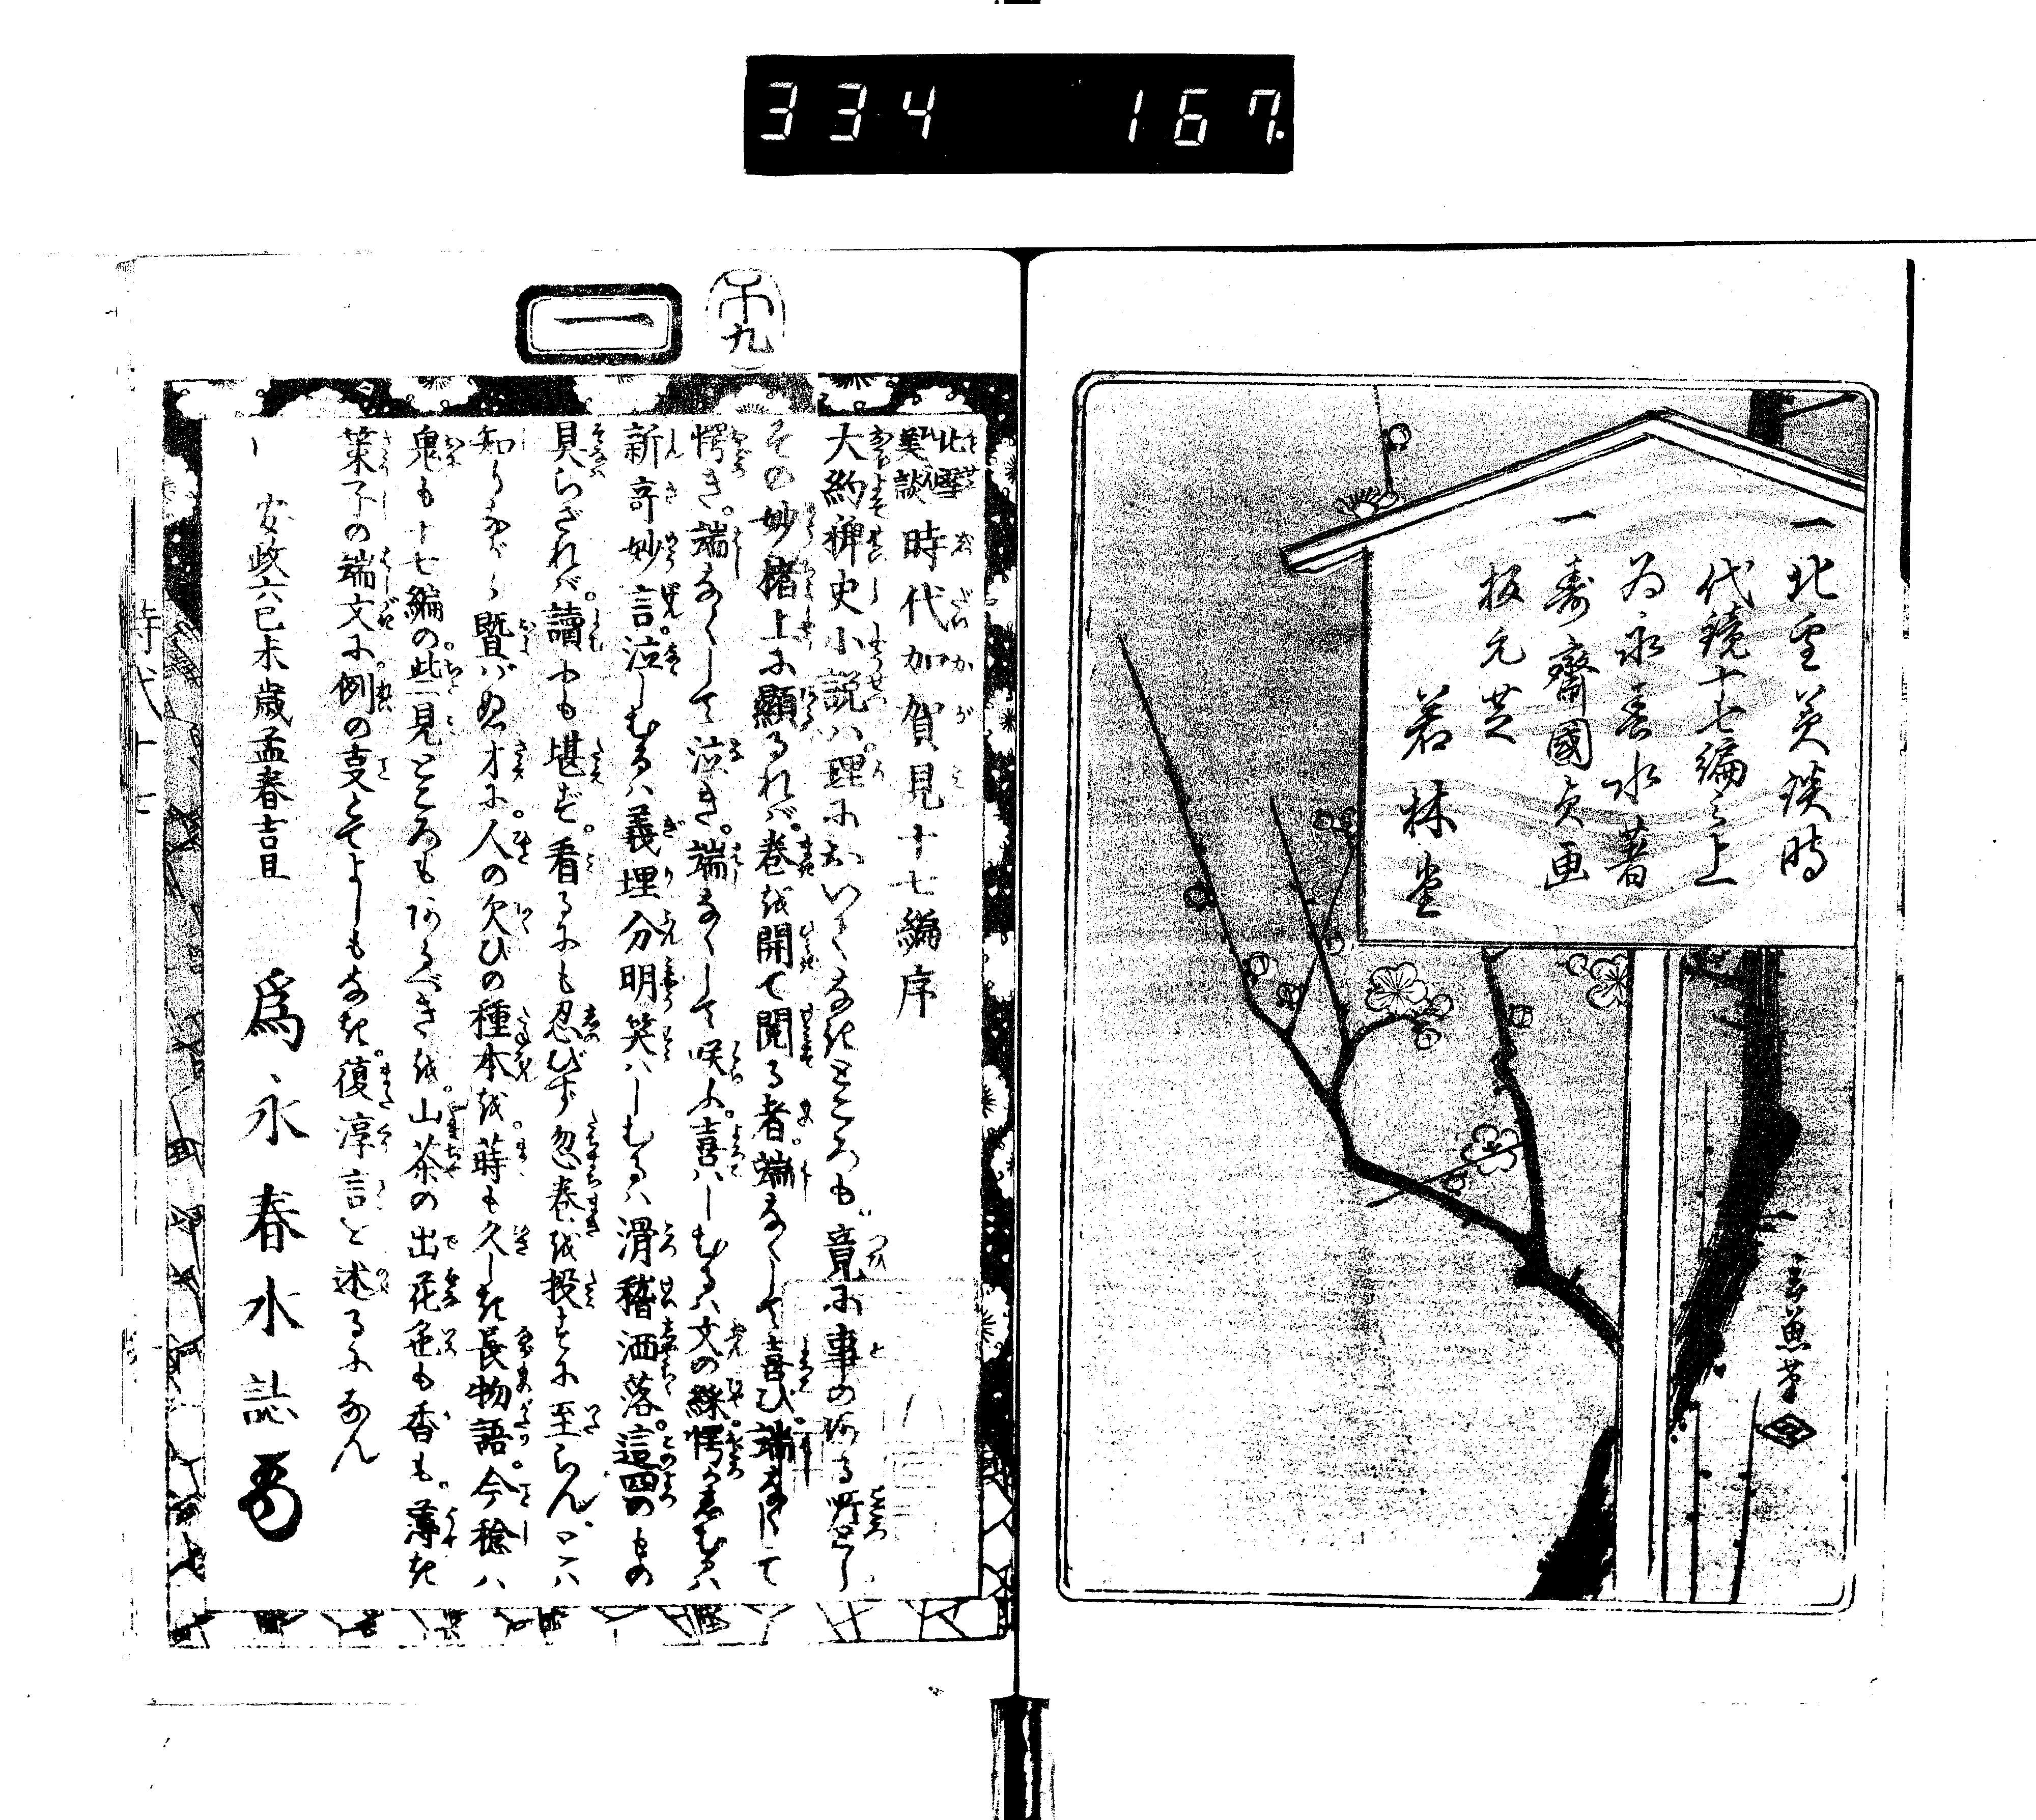 334 167
一北雪美談時
代鏡十七編之上
為永春水著
一壽齋國貞画
板元芝
若林堂
三魚筆
十九
一
北雪美談時代加賀見十七編序
大約稗史小説ハ。理においてなきところも竟に事のある所とし
その妙緒上に顯るれバ。巻を開て閲る者。端なくして喜び。端なくして
愕き。端なくして泣き。端なくして咲ふ。喜ハしむるハ文の
新奇妙言。泣しむるハ義理分明笑ハしむるハ滑稽洒落。這四のもの
具らざれバ。讀にも堪ず。看るにも忍びず忽巻を投るに至らん。
知りながら暨バぬ才に。人の欠びの種本を。蒔も久しき長物語。今稔ハ
鬼も十七編の。些見ところもあるべきを。山茶の出花色も香も。薄き
菓子の端文に。例の支とてよしもなき。復淳言を述るになん
安政六己未歳孟春吉旦
爲永春水誌
時代十七